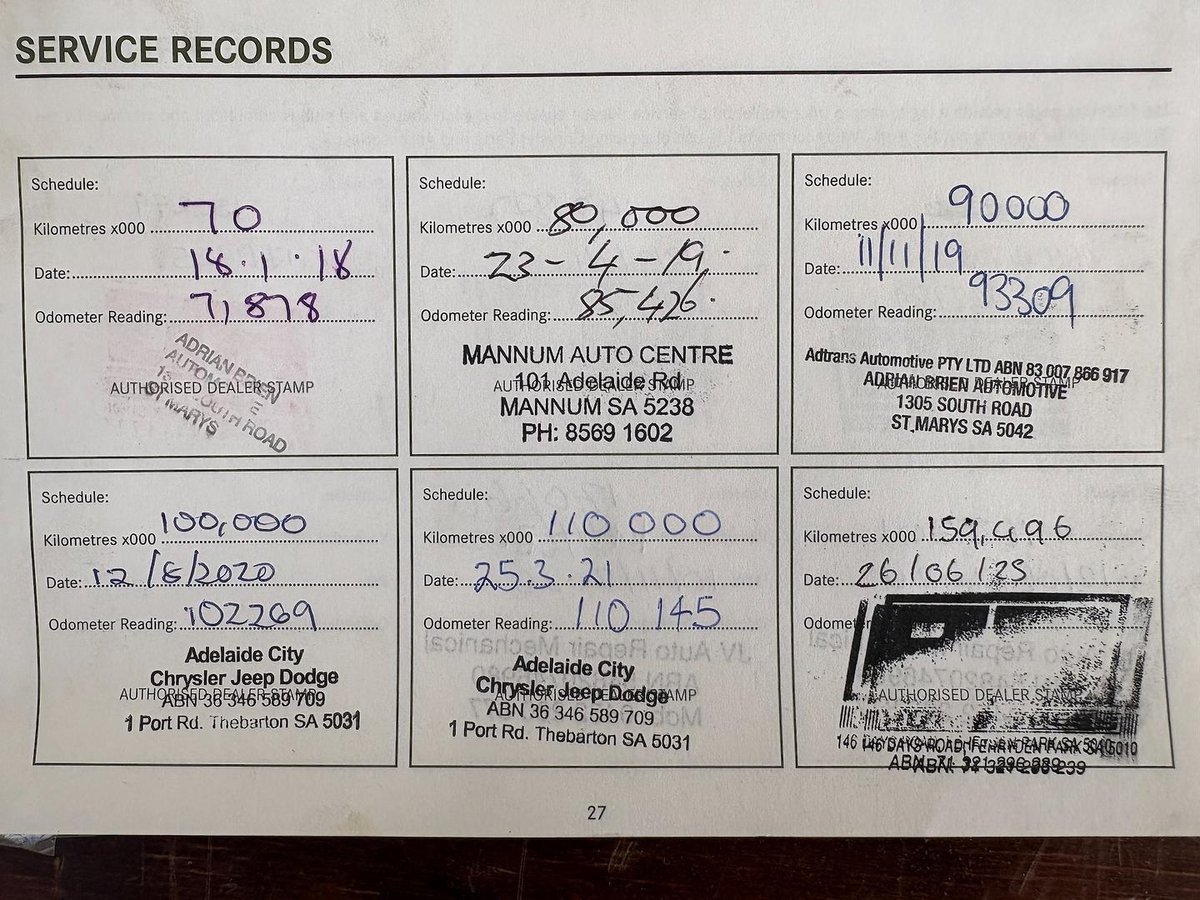 SERVICE RECORDS
Schedule:
Kilometres x000 70
Date: 18.1.18
Odometer Reading: 71,878
ADRIAN BRIEN
AUTHORISED DEALER STAMP
SOUTH ROAD
ST MARYS
Schedule:
Kilometres x000 80,000
Date: 23-4-19
Odometer Reading: 85,426
MANNUM AUTO CENTRE
101 Adelaide Rd
AUTHORISED DEALER STAMP
MANNUM SA 5238
PH: 8569 1602
Schedule:
Kilometres x000 90000
Date: 11/11/19
Odometer Reading: 93309
Adtrans Automotive PTY LTD ABN 83 007 866 917
AUTHORISED DEALER STAMP
ADRIAN BRIEN AUTOMOTIVE
1305 SOUTH ROAD
ST.MARYS SA 5042
Schedule:
Kilometres x000 100,000
Date: 12/8/2020
Odometer Reading: 102269
Adelaide City
Chrysler Jeep Dodge
AUTHORISED DEALER STAMP
ABN 36 346 589 709
1 Port Rd. Thebarton SA 5031
Schedule:
Kilometres x000 110 000
Date: 25.3.21
Odometer Reading: 110 145
Adelaide City
Chrysler Jeep Dodge
AUTHORISED DEALER STAMP
ABN 36 346 589 709
1 Port Rd. Thebarton SA 5031
Schedule:
Kilometres x000 159,496
Date: 26/06/25
Odometer
AUTHORISED DEALER STAMP
146 DAYS ROAD, FERRYDEN PARK SA 5010
ABN:
27